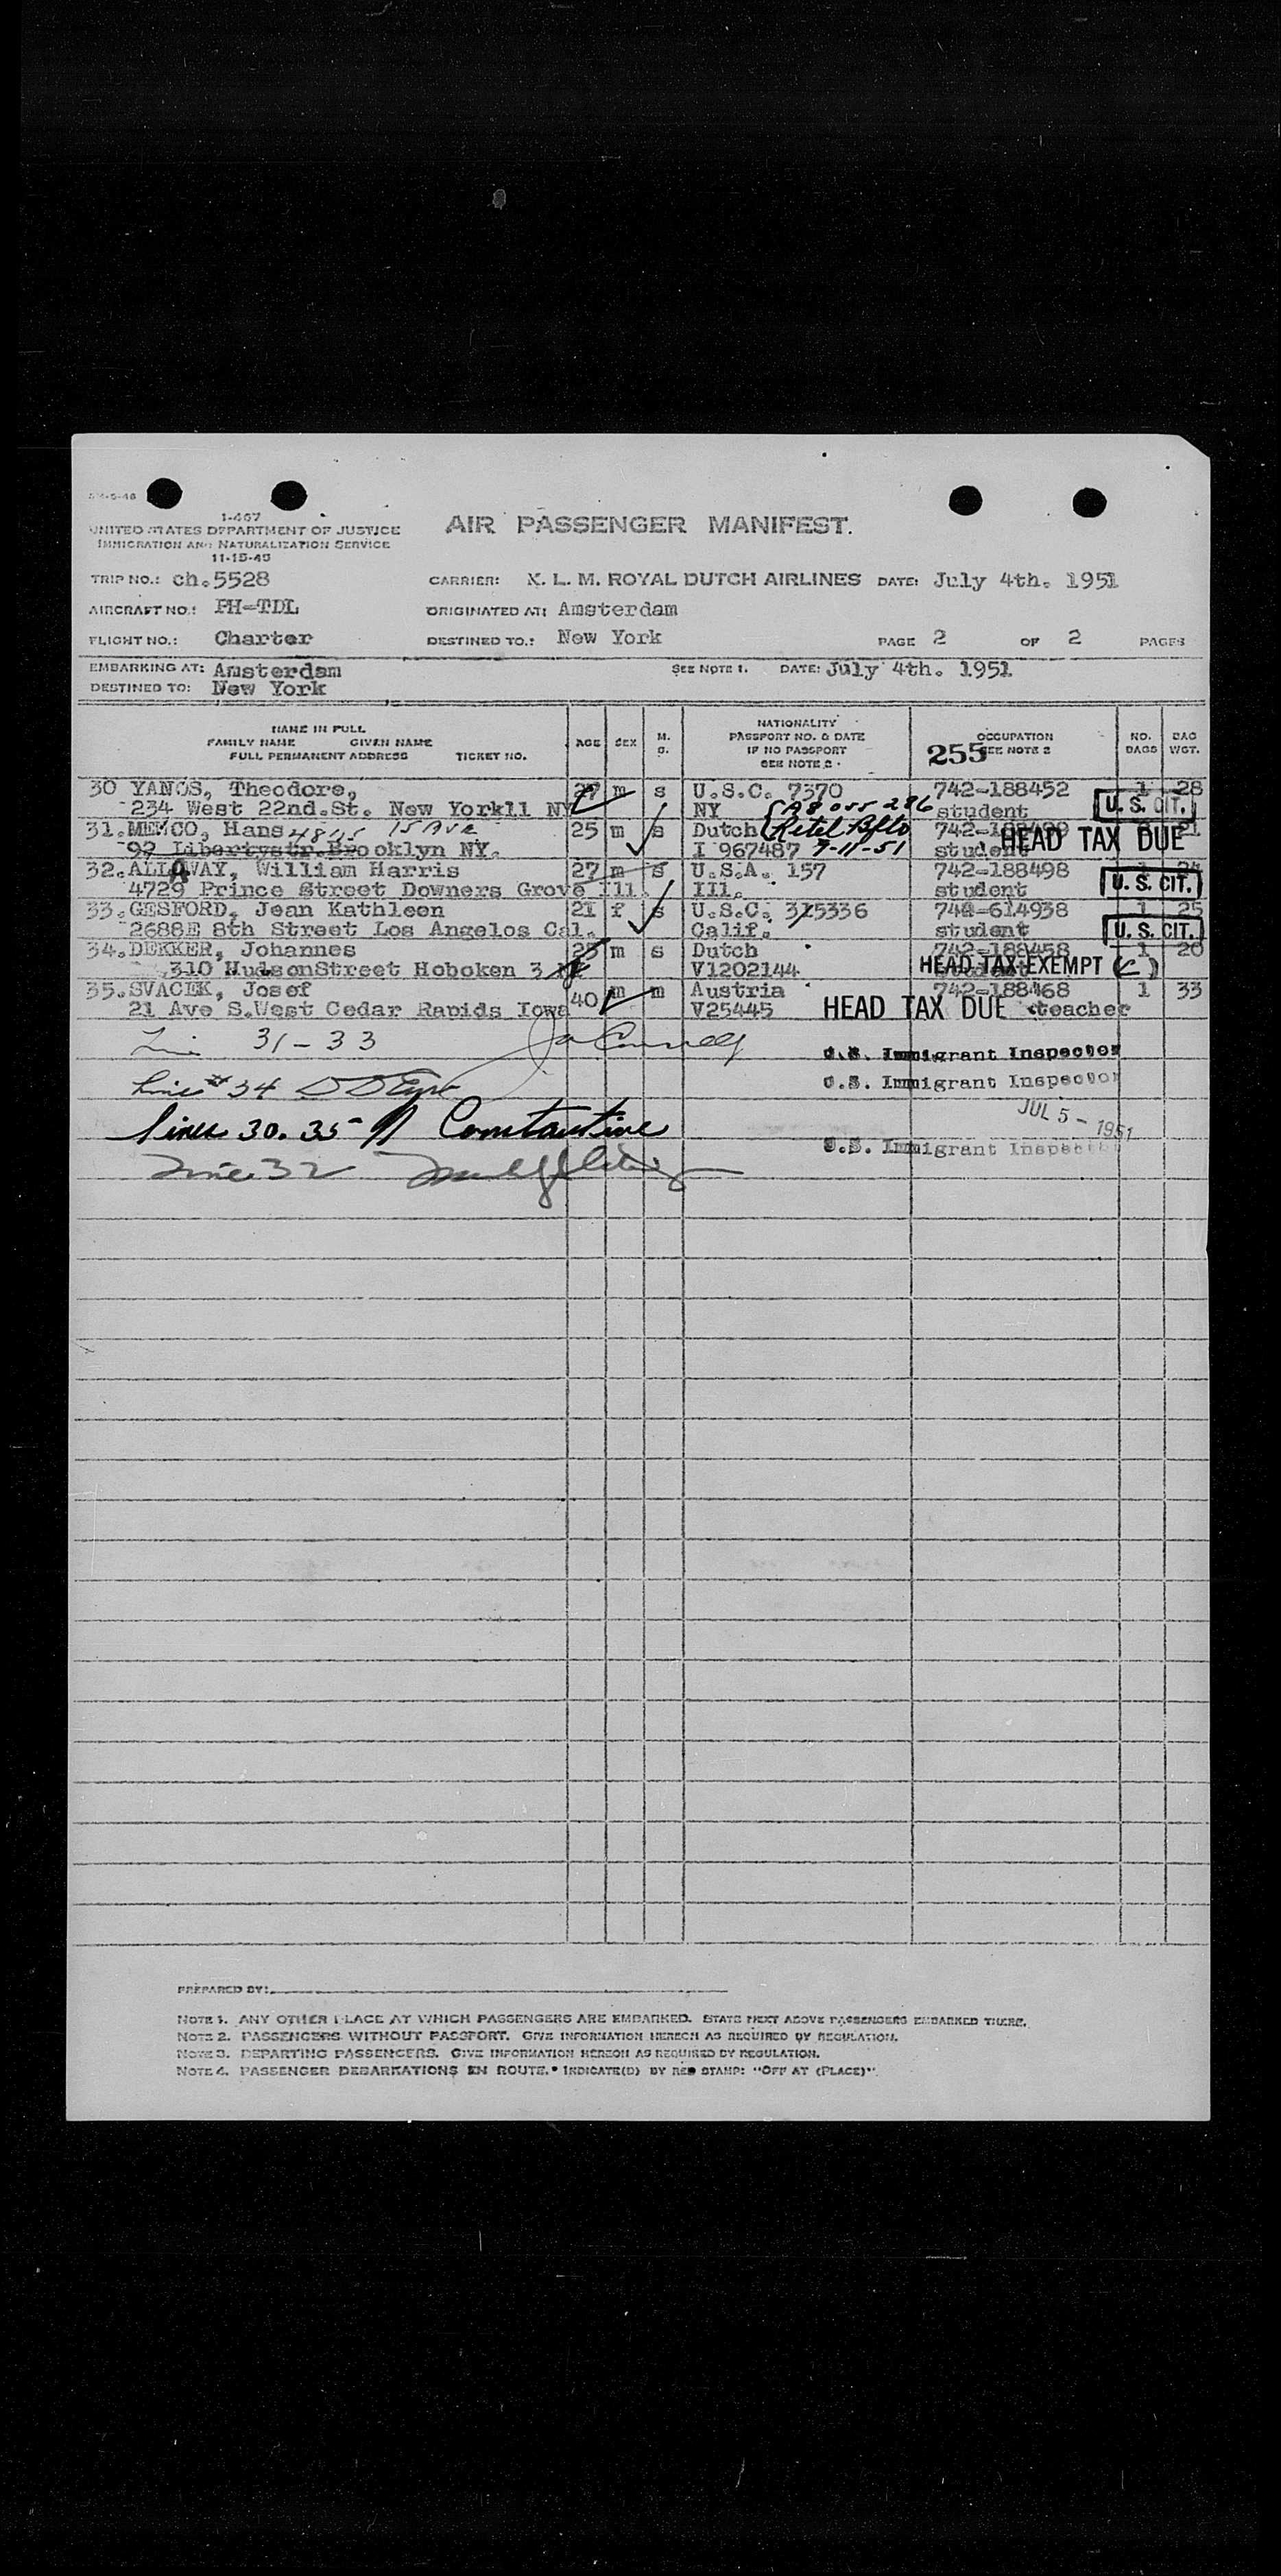 1-467
UNITED STATES DEPARTMENT OF JUSTICE
IMMIGRATION AND NATURALIZATION SERVICE
11-15-45
AIR PASSENGER MANIFEST.
TRIP NO.: ch.5528 CARRIER: K. L. M. ROYAL DUTCH AIRLINES DATE: July 4th. 1951
AIRCRAFT NO.: PH-TDL ORIGINATED AT: Amsterdam
FLIGHT NO.: Charter DESTINED TO.: New York PAGE 2 OF 2 PAGES
EMBARKING AT: Amsterdam SEE NOTE 1. DATE: July 4th. 1951
DESTINED TO: New York
NAME IN FULL
FAMILY NAME GIVEN NAME
FULL PERMANENT ADDRESS TICKET NO.
AGE SEX M. S.
NATIONALITY
PASSPORT NO. & DATE
IF NO PASSPORT
SEE NOTE 2.
OCCUPATION
255 SEE NOTE 2
NO. BAGS
BAG WGT.
30 YANOS, Theodore, 27 m s U.S.C. 7370 742-188452 1 28
234 West 22nd.St. New York11 NY NY A8 055 286 student U. S. CIT.
31. MEMCO, Hans 4805 15 Ave 25 m s Dutch 21
92 Libertystr.Brooklyn NY. I 967487 7-11-51 student HEAD TAX DUE
32. ALLAWAY, William Harris 27 m s U.S.A. 157 742-188498 1 24
4729 Prince Street Downers Grove Ill. Ill. student U. S. CIT.
33. GESFORD, Jean Kathleen 21 f s U.S.C. 315336 744-614938 1 25
2688E 8th Street Los Angelos Cal. Calif. student U. S. CIT.
34. DEKKER, Johannes 25 m s Dutch 742-188458 1 20
310 HudsonStreet Hoboken 3 V1202144 HEAD TAX EXEMPT
35. SVACEK, Josef 40 m m Austria 742-188468 1 33
21 Ave S.West Cedar Rapids Iowa V25445 HEAD TAX DUE teacher
31-33 U.S. Immigrant Inspector
Line # 34 U.S. Immigrant Inspector
JUL 5 - 1951
lines 30. 35 Constantine U.S. Immigrant Inspector
Line 32
PREPARED BY:
NOTE 1. ANY OTHER PLACE AT WHICH PASSENGERS ARE EMBARKED. STATE NEXT ABOVE PASSENGERS EMBARKED THERE.
NOTE 2. PASSENGERS WITHOUT PASSPORT. GIVE INFORMATION HEREON AS REQUIRED BY REGULATION.
NOTE 3. DEPARTING PASSENGERS. GIVE INFORMATION HEREON AS REQUIRED BY REGULATION.
NOTE 4. PASSENGER DEBARKATIONS EN ROUTE. INDICATE(D) BY RED STAMP: "OFF AT (PLACE)".